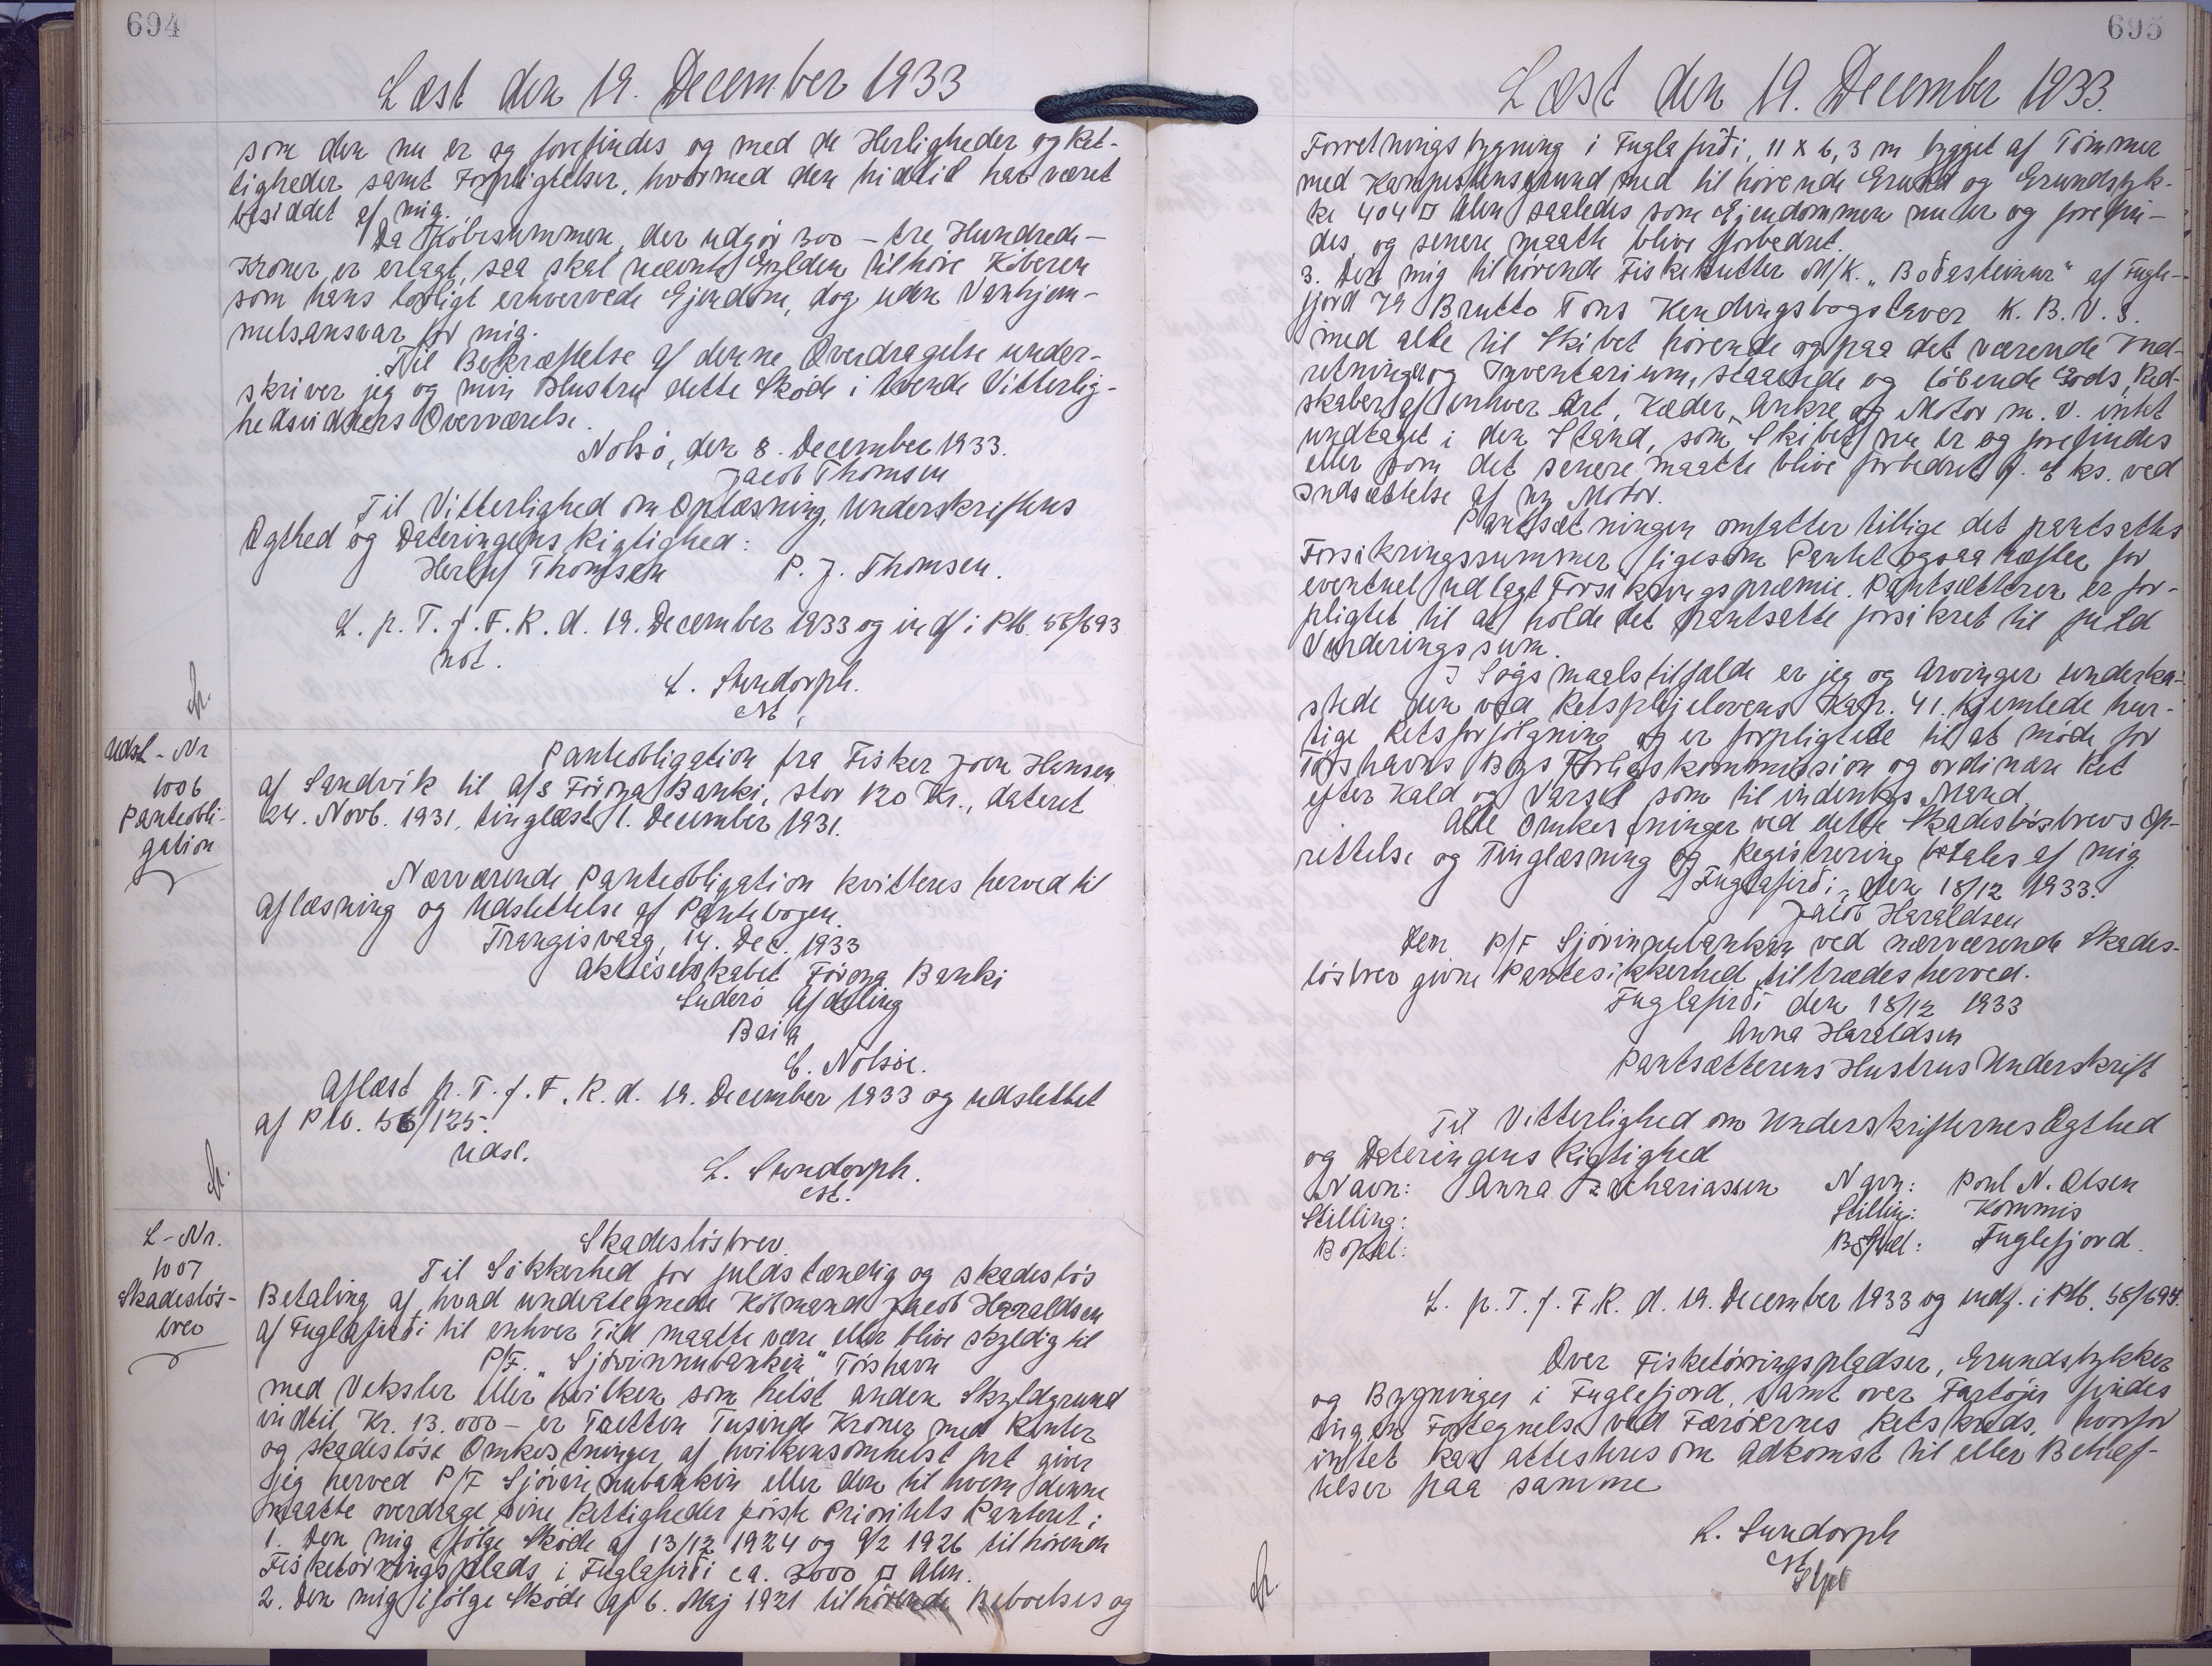 694
Læst den 19. December 1933
som den nu er og forefindes og med de Herligheder og Ret-
tigheder samt Forpligtelser, hvormed den hidtil har været
besiddet af mig.
Da Købesummen, der udgør 300 - tre Hundrede -
Kroner, er erlagt, saa skal nævnte Gylden tilhøre Køberen
som hans lovligt erhvervede Ejendom, dog uden Vanhjem-
melsansvar for mig.
Til Bekræftelse af denne Overdragelse under-
skriver jeg og min Hustru dette Skøde i tvende Vitterlig-
hedsvidners Overværelse.
Nolsø, den 8. December 1933.
Jacob Thomsen
Til Vitterlighed om Oplæsning, Underskriftens
Ægthed og Dateringens Rigtighed:
Herluf Thomsen P. J. Thomsen.
L. p. T. f. F. R. d. 19. December 1933 og indf i Ptb. 58/693
not.
L. Sundorph.
Udsl-Nr
1006
Panteobli-
gation
Panteobligation fra Fisker Joen Hansen
af Sandvik til A/S Föroya Banki, stor 120 Kr., dateret
24. Novb. 1931, tinglæst 1. December 1931.
Nærværende Panteobligation kvitteres herved til
Aflæsning og Udslettelse af Pantebogen.
Trangisvaag, 14. Dec. 1933
Aktieselskabet Föroya Banki
Suderø Afdeling
E. Nolsøe.
Aflæst p. T. f. F. R. d. 19. December 1933 og udslettet
af Ptb. 56/125.
Udsl.
L. Sundorph.
L-Nr.
1007
Skadesløs-
brev
Skadesløsbrev.
Til Sikkerhed for fuldstændig og skadesløs
Betaling af hvad undertegnede Købmand Jacob Haraldsen
af Fuglafirði til enhver Tid maatte være eller blive skyldig til
P/F. "Sjóvinnubankin" Tórshavn
med Veksler eller hvilken som helst anden Skyldgrund
indtil Kr. 13.000 - er Tretten Tusinde Kroner med Renter
og skadesløse Omkostninger af hvilkensomhelst Art giver
jeg herved P/F Sjóvinnubankin eller den til hvem denne
maatte overdrage sine Rettigheder første Prioritets Panteret i
1. Den mig ifølge Skøde af 13/12 1924 og 9/2 1926 tilhørende
Fisketørringsplads i Fuglafirði ca. 3000 □ Alen.
2. Den mig ifølge Skøde af 6. Maj 1921 tilhørende Beboelses og
695
Læst den 19. December 1933.
Forretningsbygning i Fuglafirði, 11 x 6,3 m bygget af Tømmer
med Kampestensgrund med tilhørende Grund og Grundstyk-
ke 404 □ Alen saaledes som Ejendommen nu er og forefin-
des og senere maatte blive forbedret.
3. Den mig tilhørende Fiskekutter M/K. "Boðasteinur" af Fugle-
fjord 79 Brutto Tons Kendingsbogstaver K. B. V. S.
med alle til Skibet hørende og paa det værende Ind-
retninger og Inventarium, staaende og løbende Gods, Red-
skaber af enhver Art, Kæder, Ankre og Motor m. v. intet
undtaget i den Stand, som Skibet nu er og forefindes
eller som det senere maatte blive forbedret f. Eks. ved
Indsættelse af ny Motor.
Pantsætningen omfatter tillige det pantsattes
Forsikringssummer, ligesom Pantet ogsaa hæfter for
eventuel udlagt Forsikringspræmie. Pantsætteren er for-
pligtet til at holde det pantsatte forsikret til fuld
Vurderingssum.
I Søgsmaalstilfælde er jeg og Arvinger underka-
stede den ved Retsplejelovens Kap. 41. hjemlede hur-
tige Retsforfølgning og er forpligtede til at møde for
Tórshavns Bys Forligskommission og ordinære Ret
efter Kald og Varsel som til indenbys Mand.
Alle Omkostninger ved dette Skadesløsbrevs Op-
rettelse og Tinglæsning og Registrering betales af mig
Fuglafirði, den 18/12 1933.
Jacob Haraldsen
Den P/F Sjóvinnubankin ved nærværende Skades-
løsbrev givne Pantesikkerhed tiltrædes herved.
Fuglafirði den 18/12 1933
Anna Haraldsen
Pantsætterens Hustrus Underskrift
Til Vitterlighed om Underskrifternes Ægthed
og Dateringens Rigtighed
Navn: Anna Zachariassen Navn: Poul N. Olsen
Stilling: Stillin: Kommis
Bopæl: Bopæl: Fuglefjord.
L. p. T. f. F. R. d. 19. December 1933 og indf. i Ptb. 58/694.
Over Fisketørringspladser, Grundstykker
og Bygninger i Fuglefjord, samt over Fartøjer findes
ingen Fortegnelse ved Færøernes Retskreds, hvorfor
intet kan attesteres om Adkomst til eller Behæf-
telser paa samme
L. Sundorph